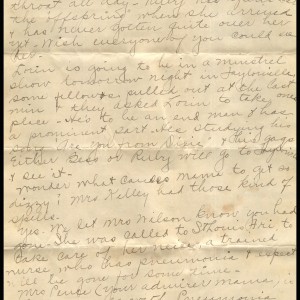 throat all day. Ruby has
"the offspring" when she arrived
& has never gotten quite over her
yet. Wish everyone of you could see
her.
Lorin is going to be in a minstrel
show tomorrow night in Taylorville,
some fellows pulled out at the last
min & they asked Lorin to take one
place - He's to be an end man & has
a prominent part. He's studying his
song "Are You From Dixie" & his gags.
Either Bess or Ruby will go to
& see it.
Wonder what causes Mama to get so
dizzy? Mrs Kelley had those kind of
spells.
Yes. We let Mrs Wilson know you had
gone. She was called to St Louis Fri. to
take care of her niece, a trained
nurse who has pneumonia & expect
will be gone for some time.
Mrs Pence (your admirer Mama) is
of pneumonia